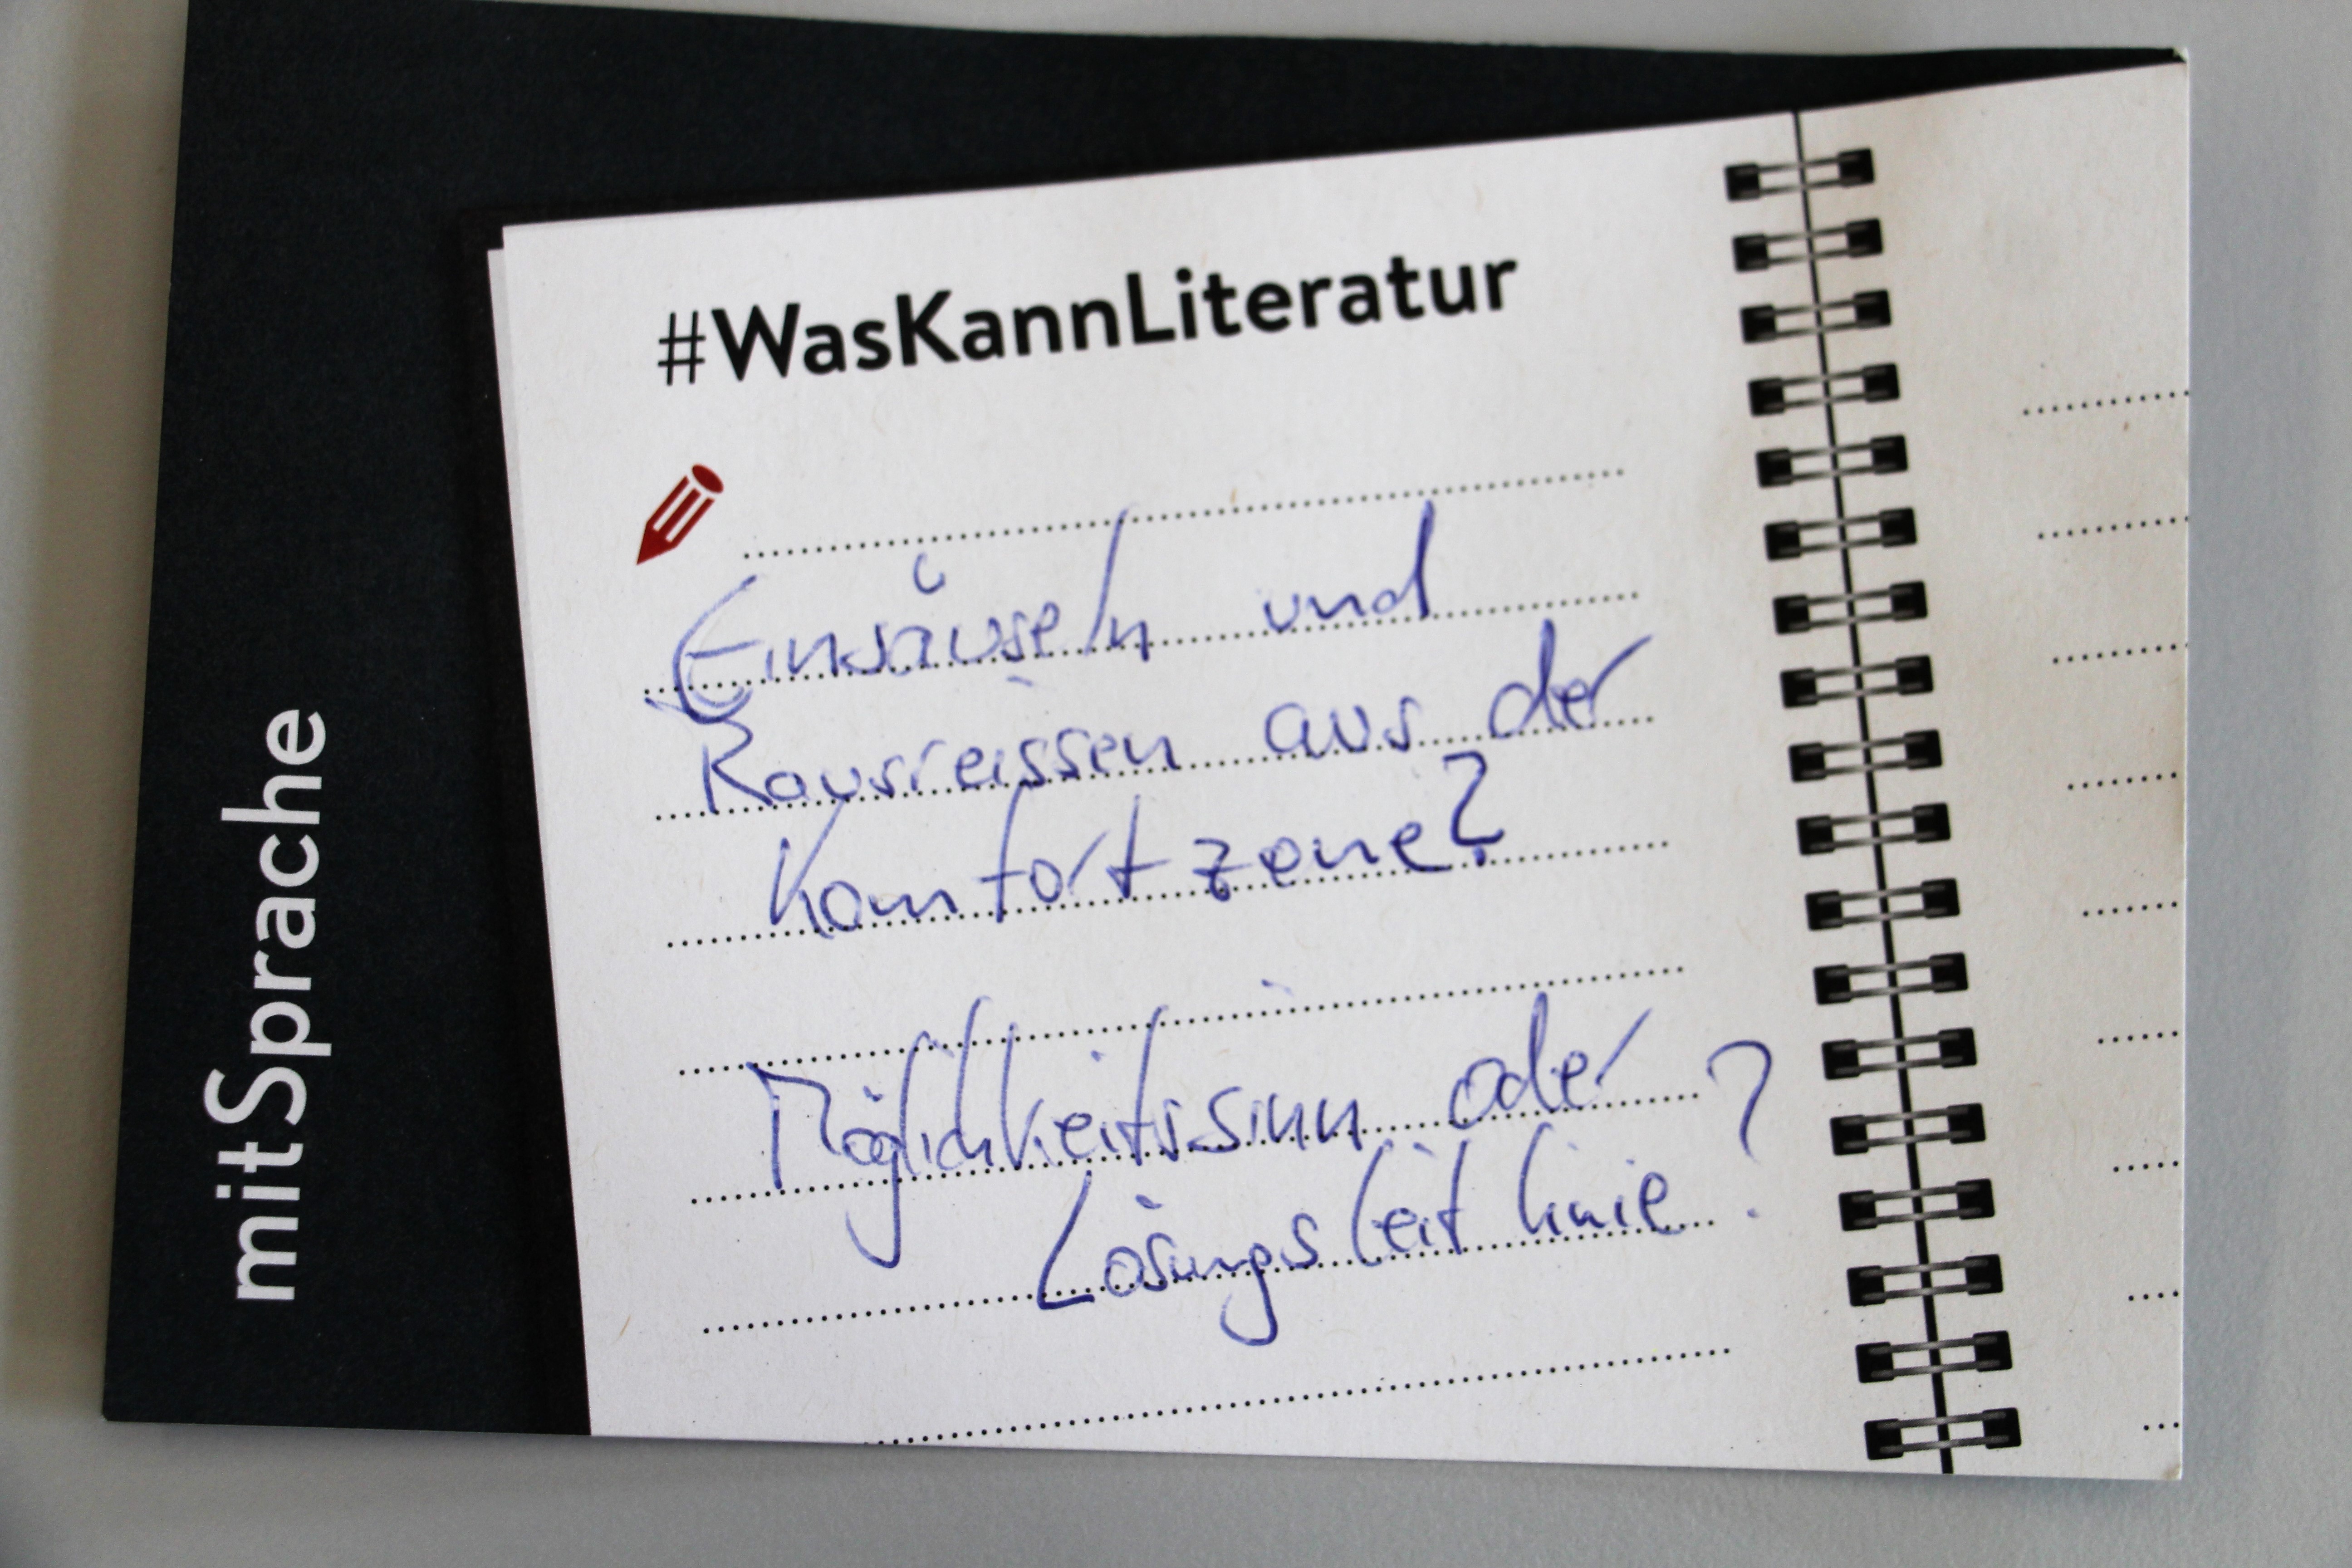 mitSprache
#WasKannLiteratur
Einsäuseln und
Rausreissen aus der
Komfortzone?
Möglichkeitssinn oder
Lösungsleitlinie?